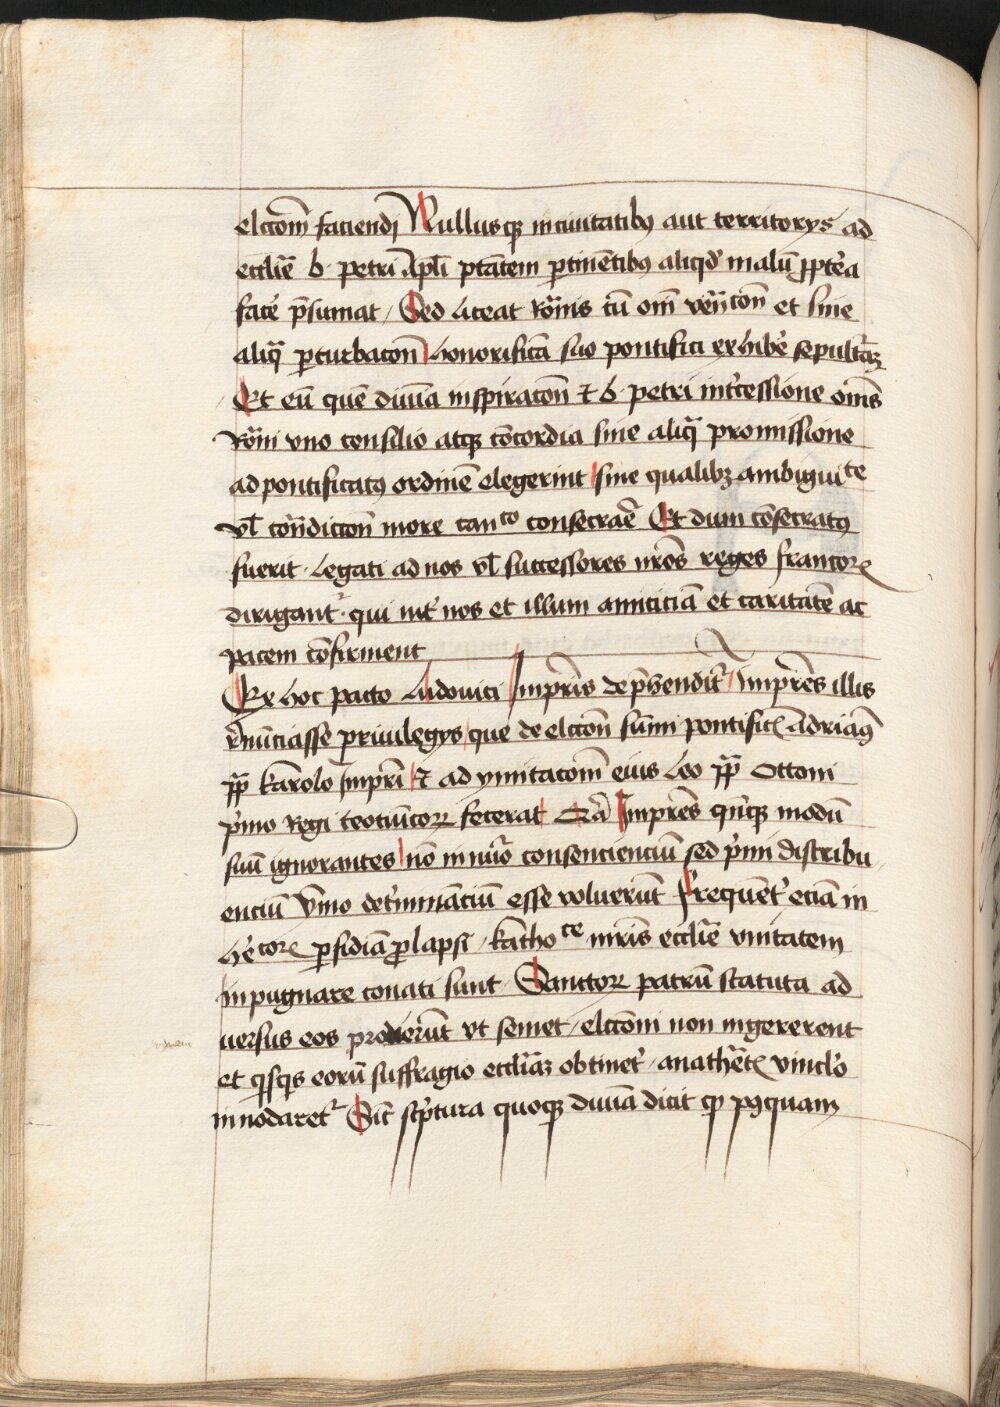 elctōm faciendj Nullusqꝫ in ciuitatibꝯ aut territorys ad
ecclīē b. petri Apl̄i ptātem ꝑtinētibꝯ aliqd' malū ꝓpt'ea
fac'e p̄sumat / Sed liceat Rōnis cū om̄i ven̄'ctōn et sine
aliqͣ ꝑturbacōn honorificā suo pontifici exhibe' sepultʳāꝫ
Et eū quē diuīa inspiracōn ⁊ b. petri int'cessione om̄s
Rōni vno consilio atqꝫ cōcordia sine aliqͣ promissione
ad pontificatꝯ ordinē elegerint sine qualibꝫ ambiguiᵗᵉ
vl̄ cōn̄dictōn more canᶜᵒ consecraē Et dum cōsecratꝯ
fuerit. legati ad nos vl̄ successores nr̄os reges francorꝝ
dirigantʳ. qui int' nos et illum amiciciā et caritatē ac
pacem cōfirment
Ex hoc pacto ludouici Imp̄ris dep̄hendit' Imp̄res illis
r̄nūciasse priuilegys / que de elctōn sūmi pontific̄ Adrianꝯ
pp̄ karolo Imp̄ri ⁊ ad ymitacōm eius Leo pp̄ Ottoni
p'mo Regi teotūicorꝝ fecerat Imp̄res q'nqꝫ modū
suū ignorantes nō in nūo consencienciū sed p'mi distribu
enciū ymo det'minanciū esse voluerūt Frequēt' eciā in
he'corꝝ ꝑfidiā ꝓlapsi / kathoᶜᵉ mr̄is ecclīē vnitatem
inpugnare conati sunt. Sanctorꝝ patrū statuta ad
uersus eos prodierūt vt semet / elctōni non ingererent
et qͥsqͥs eorū suffragio ecclīāꝫ obtinet' / anathēt̄ vincl'o
innodaretʳ Sic̄ sc'ptura quoqꝫ diuīa dicit qꝫ pꝯquam